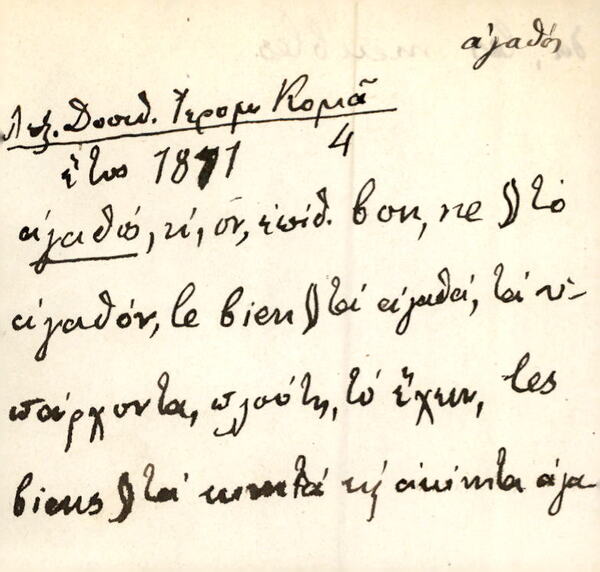 ἀγαθός
Λεξ. Δοσιθ. Ἱερομ Κομᾶ
ἔτος 1871 4
ἀγαθός, ή, όν, ἐπίθ. bon, ne)) τὸ
ἀγαθόν, le bien)) τά ἀγαθά, τά ὑ-
πάρχοντα, πλούτη, τό ἔχειν, les
biens)) τά κινητά κ ἀκίνητα ἀγα-